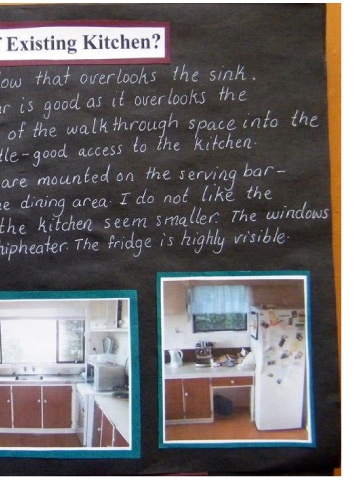 Existing Kitchen?
that overlooks the sink.
is good as it overlooks the
of the walkthrough space into the
good access to the kitchen.
are mounted on the serving bar-
dining area. I do not like the
the kitchen seem smaller. The windows
The fridge is highly visible.